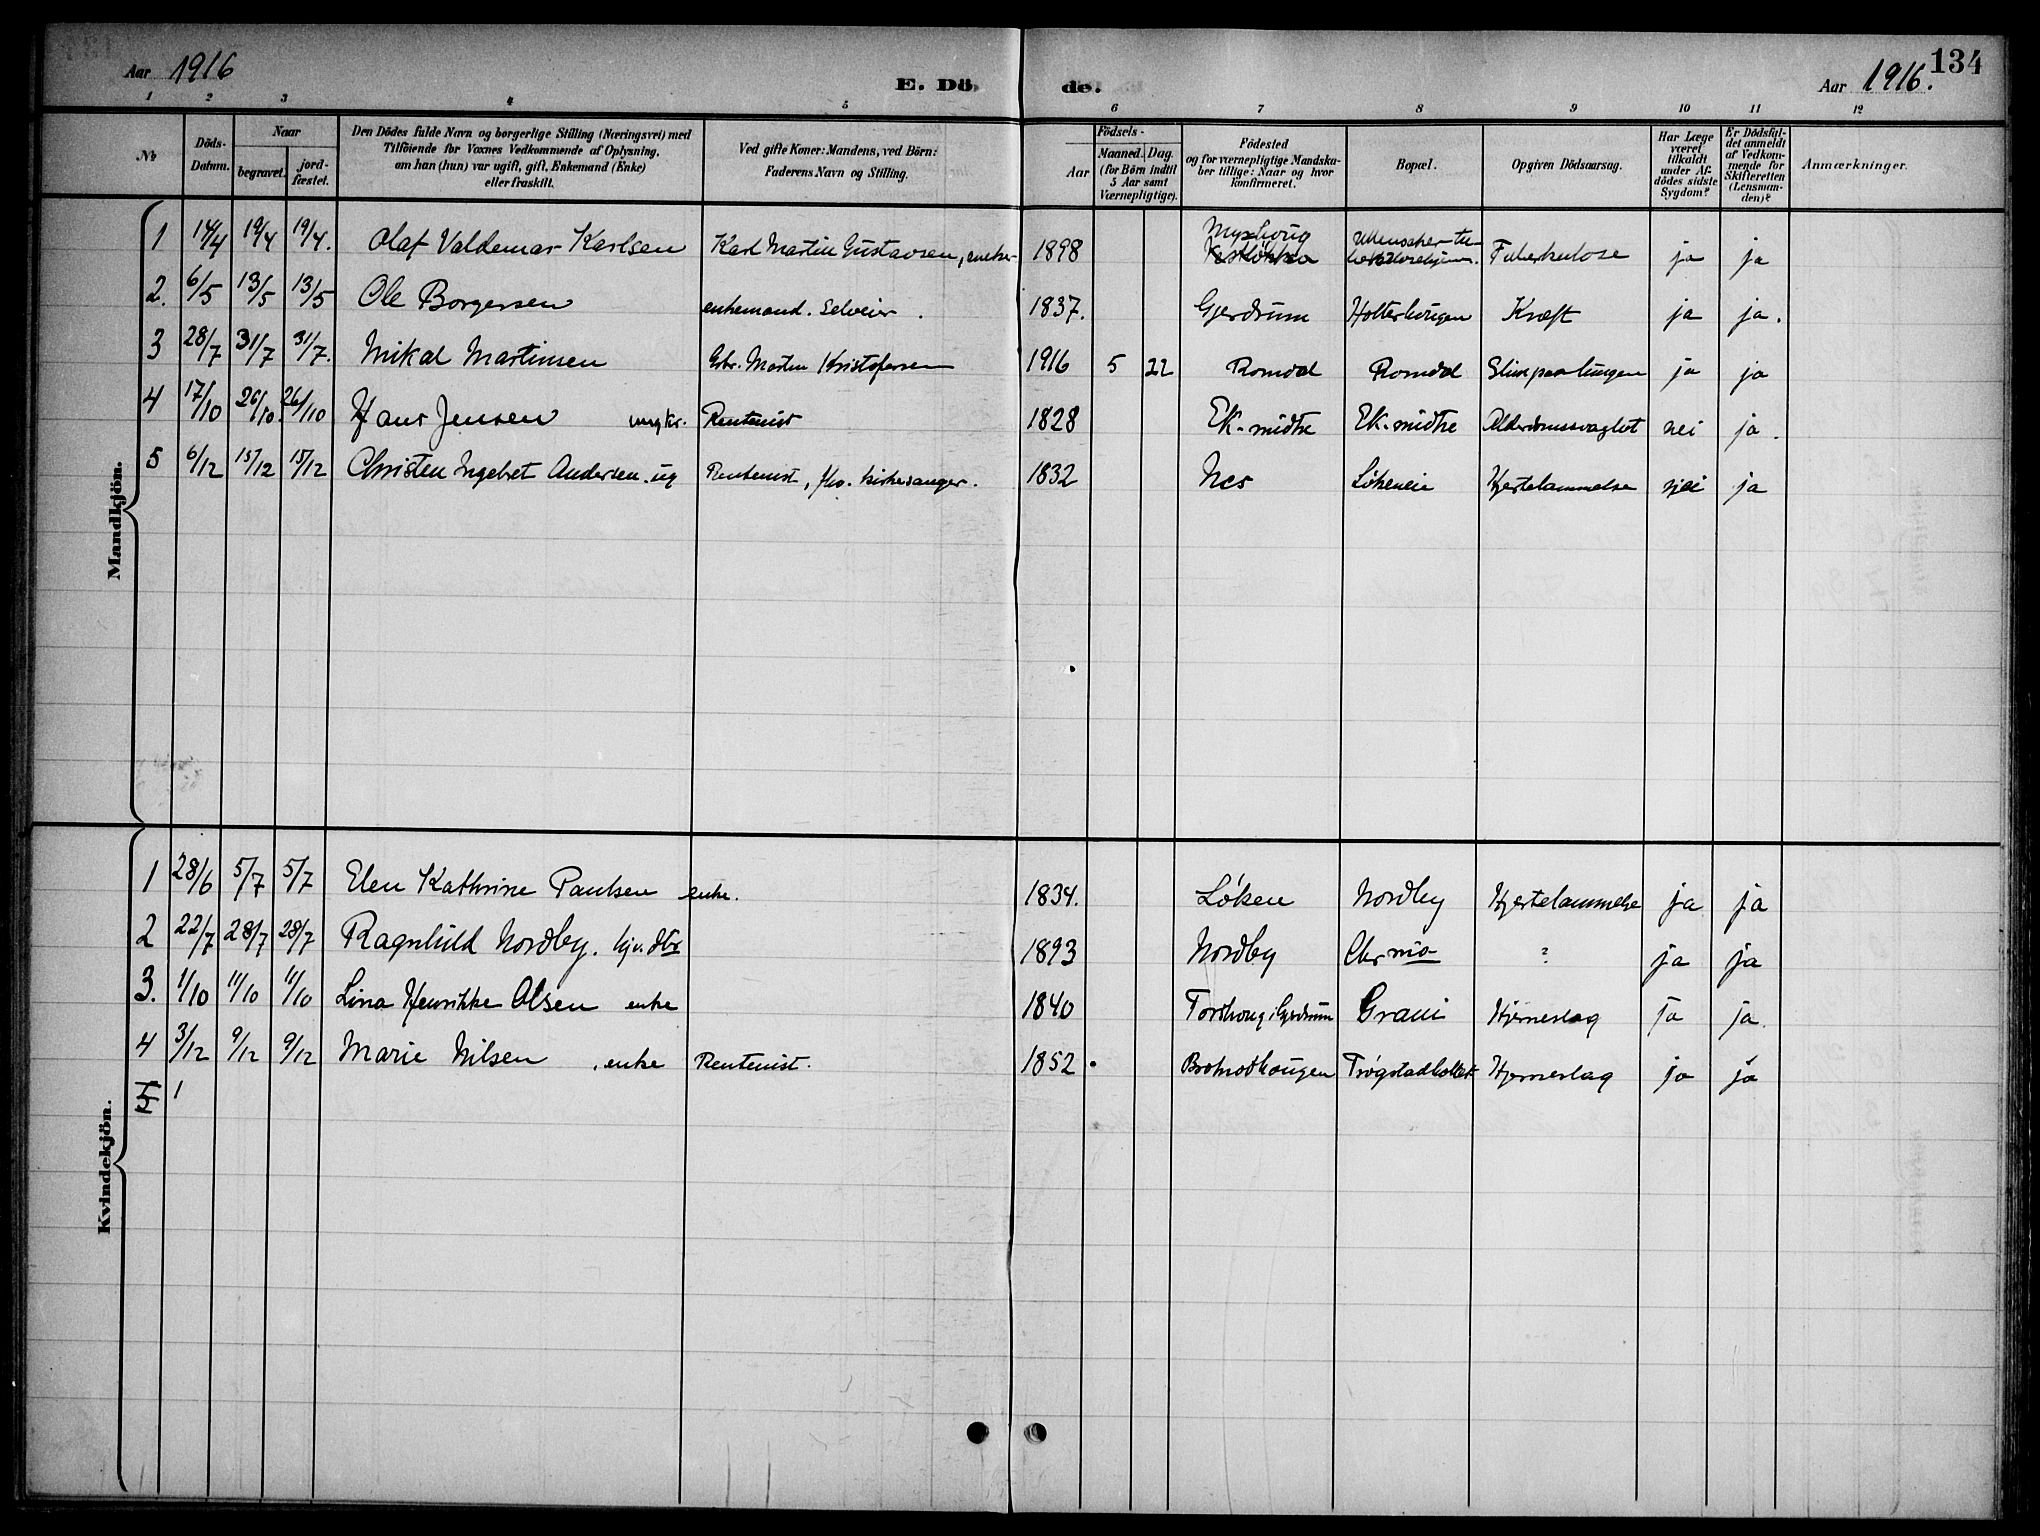 134
Aar 1916 E. Dö de. Aar 1916.
1 2 3 4 5 6 7 8 9 10 11 12
No
Döds-Datum.
Naar
begravet.
jord-fæstet.
Den Dödes fulde Navn og borgerlige Stilling (Næringsvei) med
Tilföiende for Voxnes Vedkommende af Oplysning,
om han (hun) var ugift, gift, Enkemand (Enke)
eller fraskilt.
Ved gifte Koner: Mandens, ved Börn:
Faderens Navn og Stilling.
Födsels-
Aar
Maaned. Dag.
(for Börn indtil
5 Aar samt
Værnepligtige).
Födested
og for værnepligtige Mandska-
ber tillige: Naar og hvor
konfirmeret.
Bopæl.
Opgiven Dödsaarsag.
Har Læge
været
tilkaldt
under Af-
dödes sidste
Sygdom?
Er Dödsfal-
det anmeldt
af Vedkom-
mende for
Skifteretten
(Lensman-
den)?
Anmærkninger.
Mandkjön.
1 14/4 19/4 19/4. Olaf Valdemar Karlsen Karl Martin Gustavsen, 1898 Tuberkulose ja ja
2. 6/5 13/5 13/5 Ole Borgersen enkemand. Selveier. 1837. Gjerdrum Holterhaugen Kræft ja ja.
3 28/7 31/7 31/7. Mikal Martinsen Gbr. Martin Kristofersen 1916 5 22 Romdal Romdal Slim paa lungen ja ja
4 17/10 26/10. 26/10 Hans Jensen ungkr. Rentenist 1828 Ek-midtre Ek-midtre Alderdomssvaghet nei ja.
5 6/12 15/12 15/12 Christen Ingebret Andersen. ug Rentenist, fhv. kirkesanger. 1832 Nes Løkeneie Hjertelammelse nei ja
Kvindekjön.
1 28/6 5/7 5/7 Elen Kathrine Paulsen enke. 1834. Løken Nordby Hjertelammelse ja ja
2 22/7 28/7 28/7 Ragnhild Nordby. gv. dtr 1893 Nordby Chr nia ? ja ja
3. 1/10 11/10 11/10 Lina Henrikke Olsen enke 1840 Gjerdrum Hjerneslag ja ja.
4 3/12 9/12 9/12 Marie Nilsen, enke Rentenist. 1852 Hjerneslag ja ja